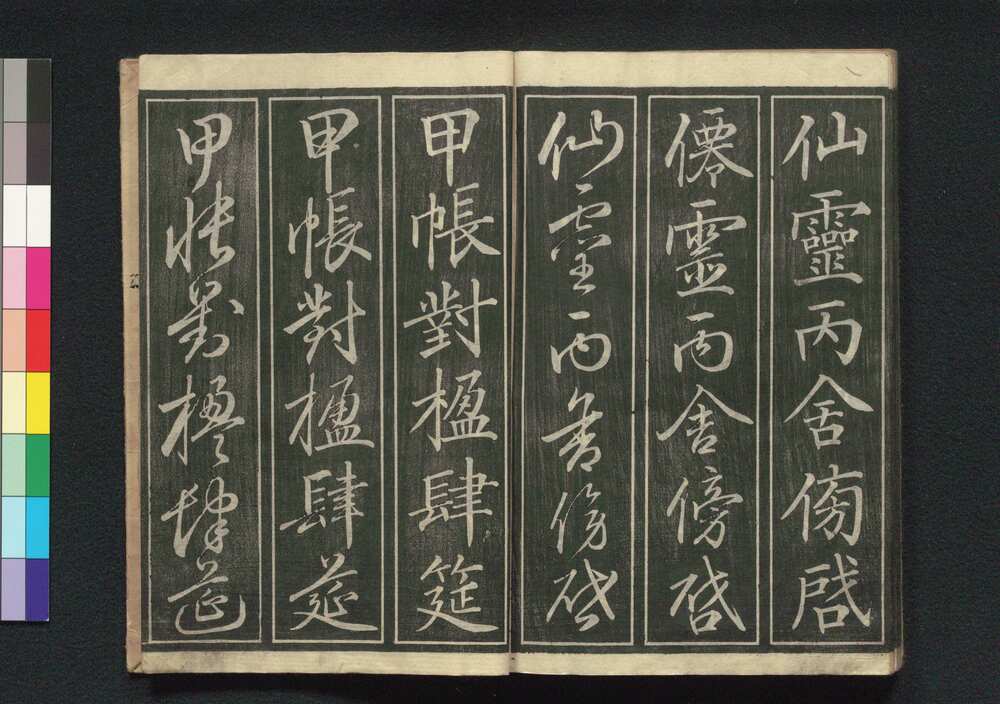 仙靈丙舍傍啓
僊靈丙舍傍啓
仙靈丙舍傍啓
甲帳對楹肆筵
甲帳對楹肆筵
甲帳對楹肆筵